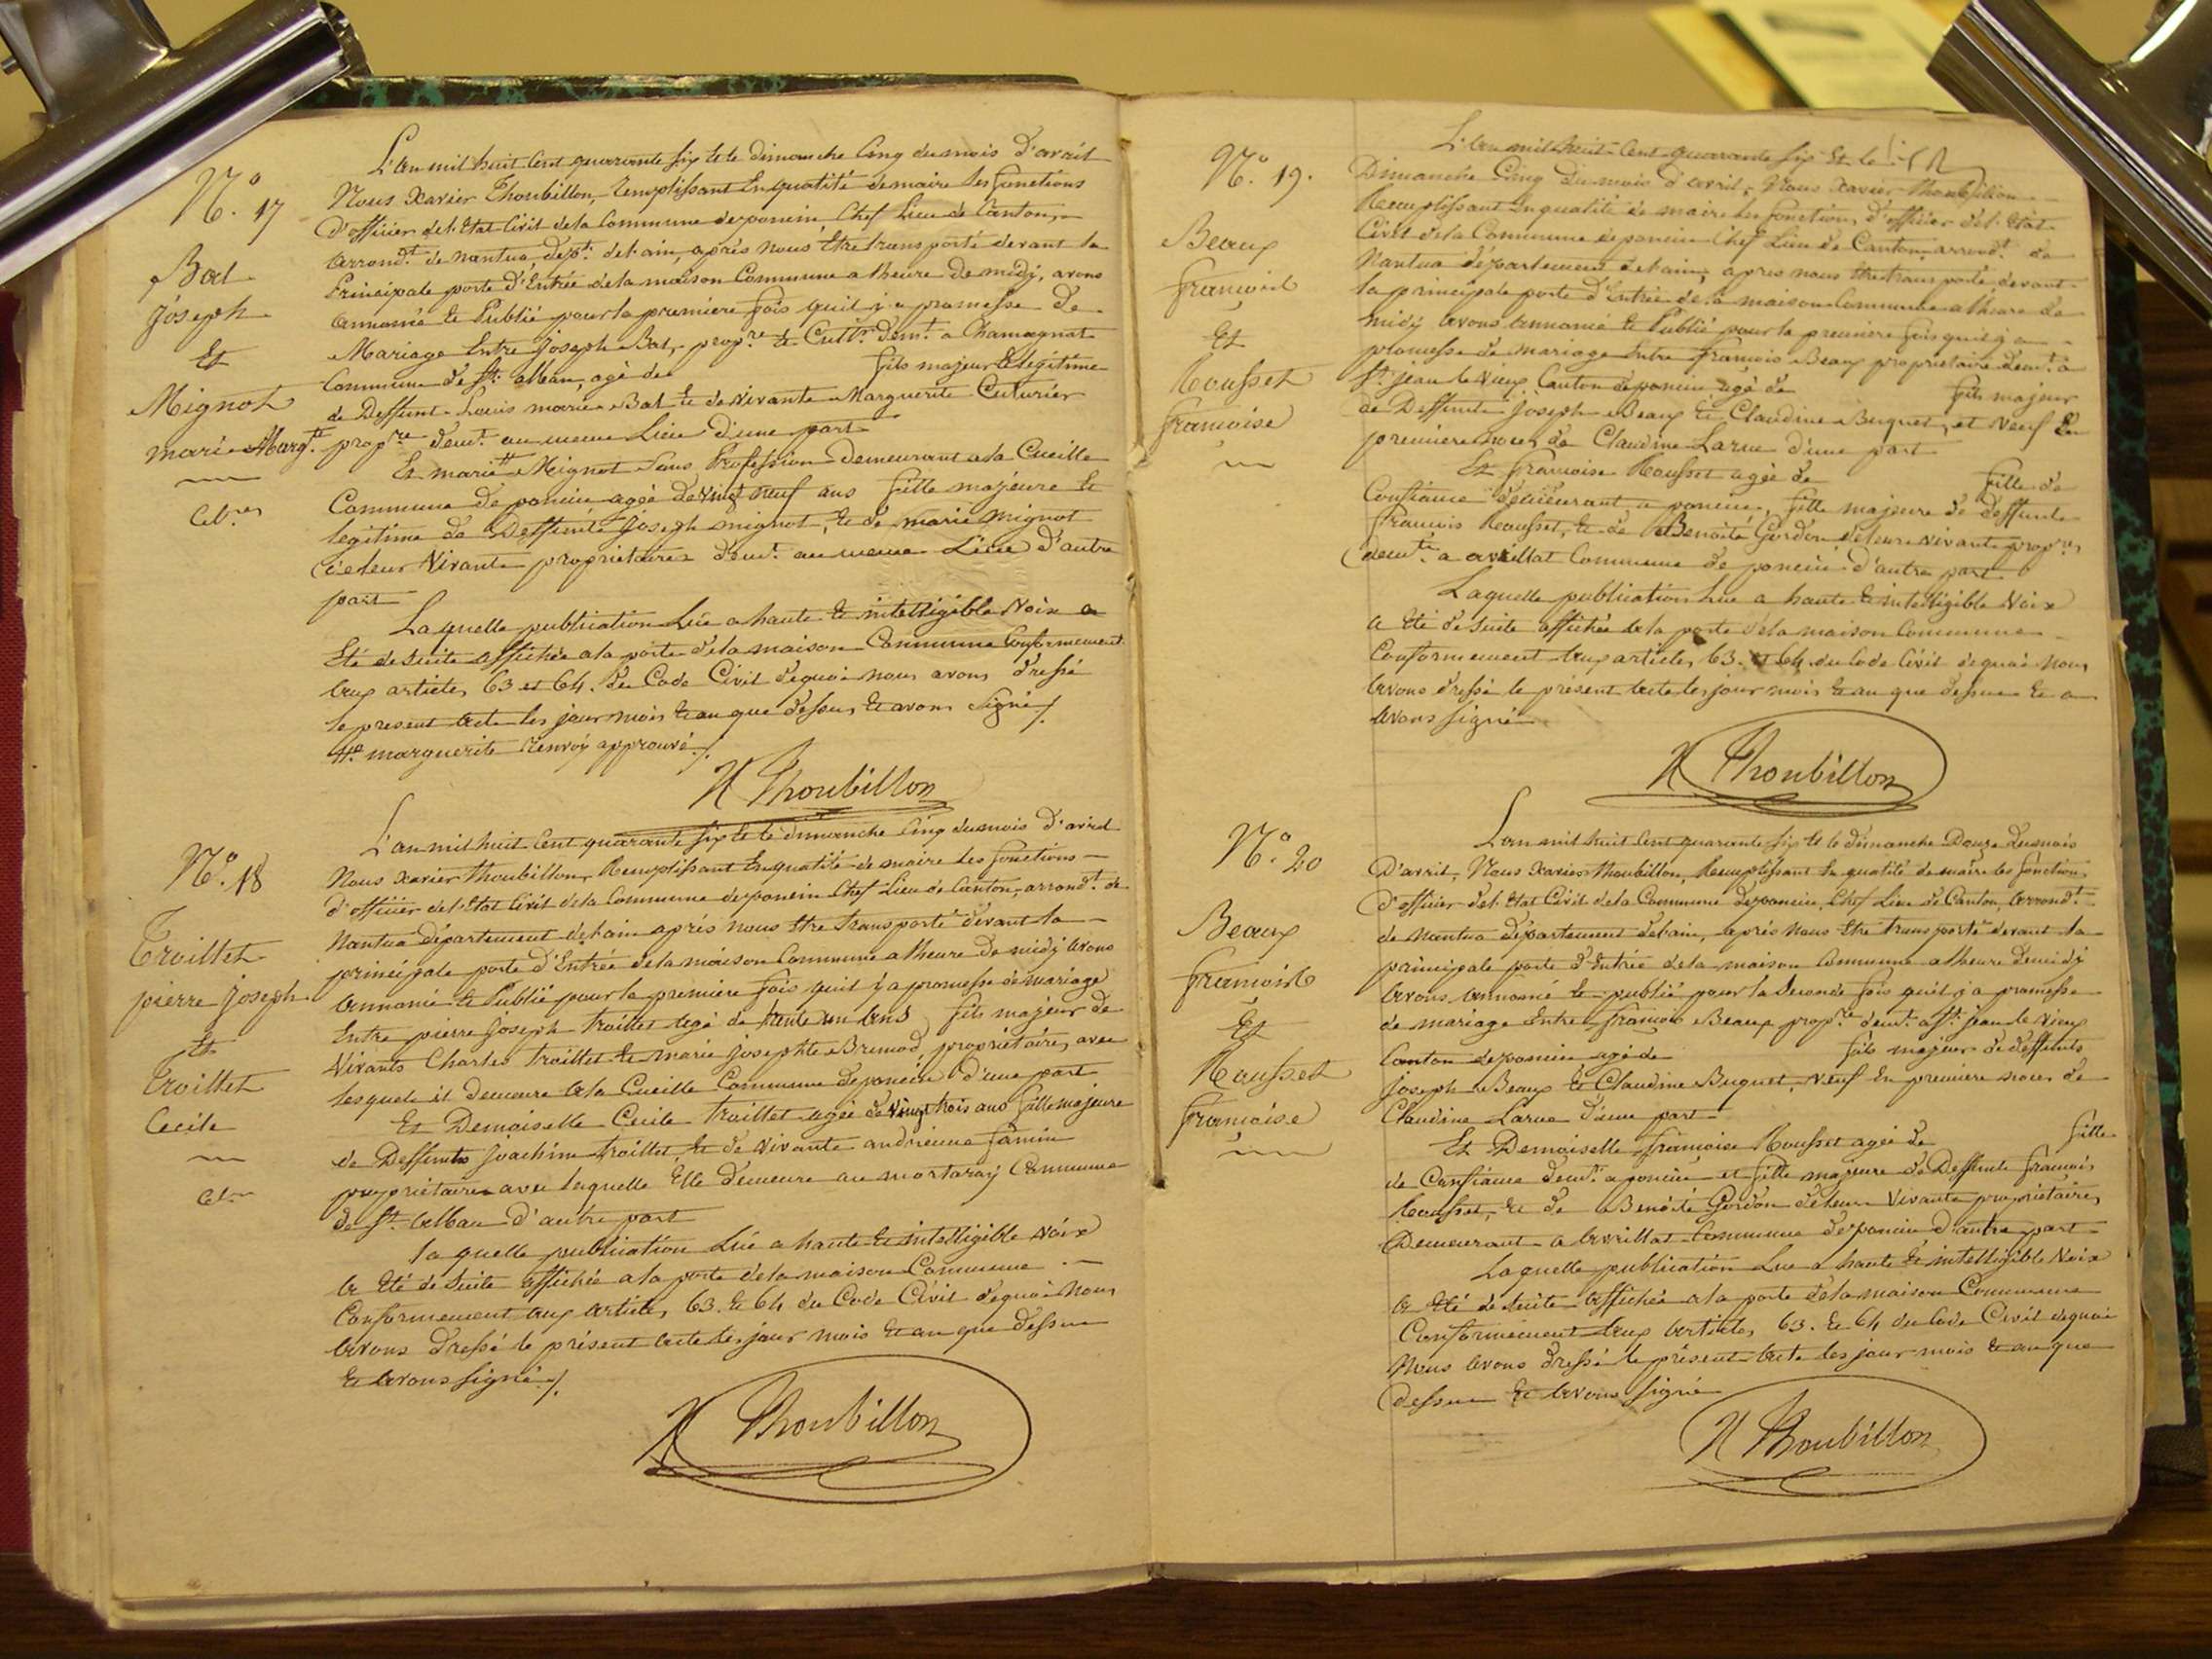 N.° 17
Bat
Joseph
Et
Mignot
marie Marg.te
Cel.res
L'an mil huit Cent quarante six et le dimanche Cinq du mois d'avril
Nous Xavier Thoubillon, Remplissant En qualité de maire les fonctions
D'officier de l'Etat Civil de la Commune de poncin Chef Lieu de Canton,
arrond.t de nantua dép.t de l'ain, après nous Etre transporté devant la
Principale porte d'Entrée de la maison Commune a lheure de midy, avons
annoncé Et Publié pour la premiere fois qu'il y a promesse de
Mariage Entre Joseph Bat, prop.re Et Cult.r dem.t a Chamagnat
Commune de St. alban, agé de fils majeur & légitime
de Deffunt Louis marie Bat Et de vivante Marguerite Cuturier
prop.re dem.t au meme Lieu D'une part
Et marie # Mignot Sans Profession Demeurant a la Cueille
Commune de poncin agée de Vingt neuf ans fille majeure Et
legitime de Deffunt Joseph mignot, Et de marie Mignot
de leur Vivant propriétaires dem.t au meme Lieu D'autre
part
La quelle publication Lue a haute Et intelligible Voix a
Eté de suite affichée a la porte de la maison Commune Conformement
aux articles 63 et 64. du Code Civil de quoi nous avons dressé
le present acte les jour mois Et an que dessus, Et avons Signé ./.
# marguerite renvoy approuvé ./.
X Thoubillon
N.° 18
Troillet
pierre Joseph
Et
Troillet
Cecile
Cel.res
L'an mil huit Cent quarante six Et le dimanche Cinq du mois D'avril
Nous Xavier Thoubillon, Remplissant En qualité de maire les fonctions
d'officier de l'Etat Civil de la Commune de poncin Chef Lieu de Canton, arrond.t de
Nantua département de l'ain après nous Etre transporté devant la
principale porte d'Entrée de la maison Commune a lheure de midy avons
annoncé Et Publié pour la premiere fois qu'il y a promesse de mariage
Entre pierre Joseph Troillet agé de trente un ans fils majeur de
Vivants Charles Troillet Et marie Josephte Brunod, propriétaires, avec
lesquels il demeure a la Cueille Commune de poncin D'une part
Et Demoiselle Cecile Troillet agée de vingt trois ans fille majeure
de Deffunts Joachim Troillet, Et de Vivante andrienne famin
propriétaires avec laquelle Elle demeure au mortaray Commune
de St. alban D'autre part
la quelle publication Lue a haute Et intelligible Voix
a Eté de suite affichée a la porte de la maison Commune
Conformement aux articles 63. Et 64 du Code Civil de quoi nous
avons Dressé le présent acte les jour mois Et an que dessus
Et avons signé ./.
X Thoubillon
N.° 19.
Beaux
françois
Et
Rousset
françoise
L'an mil huit Cent quarante six Et le
Dimanche Cinq du mois d'avril, Nous Xavier Thoubillon
Remplissant En qualité de maire les fonctions d'officier de l'Etat
Civil de la Commune de poncin Chef Lieu de Canton, arrond.t de
Nantua département de l'ain, apres nous Etre transporté devant
la principale porte d'Entrée de la maison Commune a lheure de
midy avons annoncé Et Publié pour la premiere fois qu'il y a
promesse de mariage Entre françois Beaux propriétaire dem.t a
St. jean le Vieux Canton de poncin agé de fils majeur
de Deffunts Joseph Beaux Et Claudine Buquet, et Veuf En
premieres noces de Claudine Larue D'une part
Et françoise Rousset agée de fille de
Confiance demeurant a poncin, fille majeure de deffunts
françois Rousset, Et de Benoite Gordon de leur vivant prop.res
dem.ts a avrillat Commune de poncin D'autre part
Laquelle publication Lue a haute Et intelligible Voix
a Eté de suite affichée a la porte de la maison Commune
Conformement aux articles, 63. et 64. du Code Civil de quoi nous
avons dressé le présent acte les jour mois Et an que dessus Et
avons signé
X Thoubillon
N.° 20
Beaux
françois
Et
Rousset
françoise
L'an mil huit Cent quarante six Et le dimanche Douze du mois
D'avril, Nous Xavier Thoubillon, Remplissant En qualité de maire les fonctions
D'officier de l'Etat Civil de la Commune de poncin, Chef Lieu de Canton, arrond.t
de Nantua département de l'ain, après nous Etre transporté devant la
principale porte D'Entrée de la maison Commune a lheure de midy
avons annoncé Et publié pour la Seconde fois qu'il y a promesse
de mariage Entre françois Beaux prop.re dem.t a St. jean le Vieux
Canton de poncin agé de fils majeur de deffunts
joseph Beaux Et Claudine Buquet, Veuf En premieres noces de
Claudine Larue D'une part
Et Demoiselle françoise Rousset agée de fille
de Confiance dem.t a poncin et fille majeure de Deffunts françois
Rousset, Et de Benoite Gordon de leur Vivant propriétaires
Demeurant a avrillat Commune de poncin D'autre part
La quelle publication Lue a haute Et intelligible Voix
a Eté de suite affichée a la porte de la maison Commune
Conformement aux articles, 63. Et 64 du Code Civil de quoi
Nous avons dressé le présent acte les jour mois Et an que
dessus Et avons signé
X Thoubillon